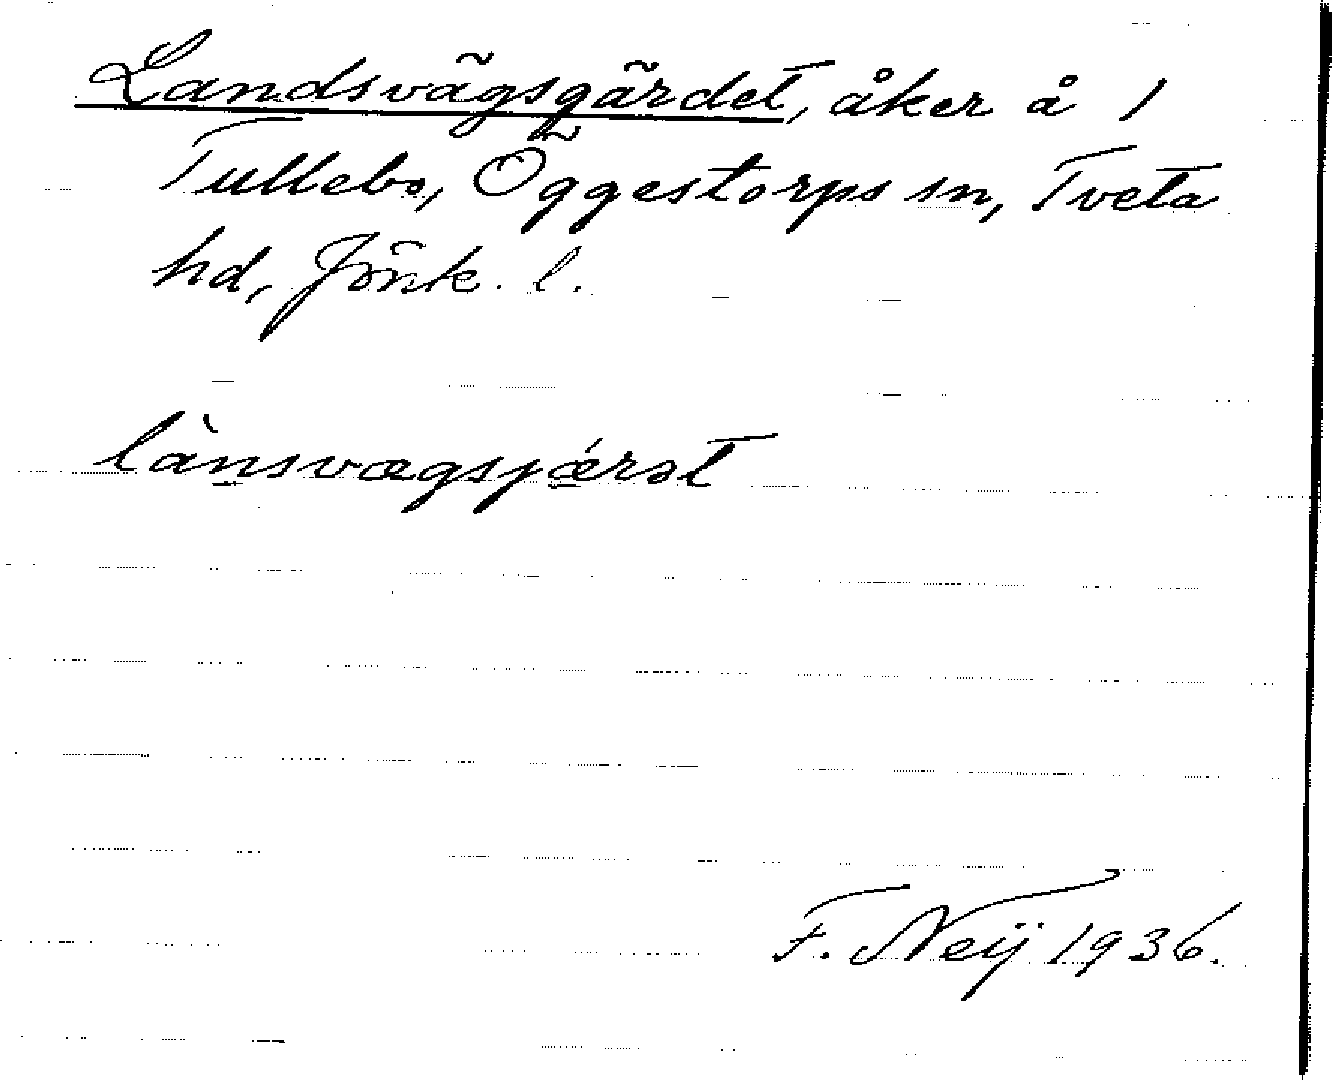 Landsvägsgärdet, åker å 1
Tullebo, Öggestorps sn, Tveta
hd, Jönk. l.
lànsvægsjǽrət
F. Neij 1936.